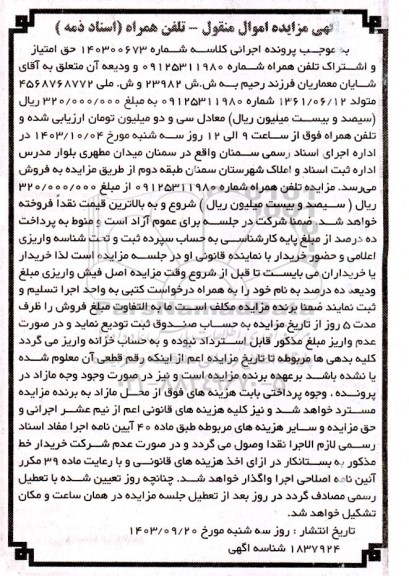 آگهی مزایده اموال منقول – تلفن همراه (اسناد ذمه)
به موجب پرونده اجرائی کلاسه شماره ۱۴۰۳۰۰۶۷۳ حق امتیاز
و اشتراک تلفن همراه شماره ۰۹۱۲۵۳۱۱۹۸۰ و ودیعه آن متعلق به آقای
شایان معماریان فرزند رحیم به ش.ش ۲۳۹۸۲ و ش. ملی ۴۵۶۸۷۶۸۷۷۲
متولد ۱۳۶۱/۰۶/۱۲ شماره ۰۹۱۲۵۳۱۱۹۸۰ به مبلغ ۳۲۰/۰۰۰/۰۰۰ ریال
(سیصد و بیست میلیون ریال) معادل سی و دو میلیون تومان ارزیابی شده و
تلفن همراه فوق از ساعت ۹ الی ۱۲ روز سه شنبه مورخ ۱۴۰۳/۱۰/۰۴ در
اداره اجرای اسناد رسمی سمنان واقع در سمنان میدان مطهری بلوار مدرس
اداره ثبت اسناد و املاک شهرستان سمنان طبقه دوم از طریق مزایده به فروش
می‌رسد. مزایده تلفن همراه شماره ۰۹۱۲۵۳۱۱۹۸۰ از مبلغ ۳۲۰/۰۰۰/۰۰۰
ریال ( سیصد و بیست میلیون ریال) شروع و به بالاترین قیمت نقداً فروخته
خواهد شد. ضمنا شرکت در جلسه برای عموم آزاد است و منوط به پرداخت
ده درصد از مبلغ پایه کارشناسی به حساب سپرده ثبت و تحت شناسه واریزی
اعلامی و حضور خریدار یا نماینده قانونی او در جلسه مزایده است لذا خریدار
یا خریداران می بایست تا قبل از شروع وقت مزایده اصل فیش واریزی مبلغ
ودیعه ده درصد به نام خود را به همراه درخواست کتبی به واحد اجرا تسلیم و
ثبت نمایند ضمنا برنده مزایده مکلف است ما به التفاوت مبلغ فروش را ظرف
مدت ۵ روز از تاریخ مزایده به حساب صندوق ثبت تودیع نماید و در صورت
عدم واریز مبلغ مذکور قابل استرداد نبوده و به حساب خزانه واریز می گردد
کلیه بدهی ها مربوطه تا تاریخ مزایده اعم از اینکه رقم قطعی آن معلوم شده
یا نشده باشد برعهده برنده مزایده است و نیز در صورت وجود وجه مازاد در
پرونده ، وجوه پرداختی بابت هزینه های فوق از محل مازاد به برنده مزایده
مسترد خواهد شد و نیز کلیه هزینه های قانونی اعم از نیم عشر اجرائی و
حق مزایده و سایر هزینه های مربوطه طبق ماده ۴۰ آیین نامه اجرا مفاد اسناد
رسمی لازم الاجرا نقدا وصول می گردد و در صورت عدم شرکت خریدار خط
مذکور به بستانکار در ازای اخذ هزینه های قانونی و با رعایت ماده ۳۹ مکرر
آئین نامه اصلاحی اجرا واگذار خواهد شد. چنانچه روز تعیین شده با تعطیل
رسمی مصادف گردد در روز بعد از تعطیل جلسه مزایده در همان ساعت و مکان
تشکیل خواهد شد.
تاریخ انتشار : روز سه شنبه مورخ ۱۴۰۳/۰۹/۲۰
۱۸۳۷۹۲۴ شناسه آگهی